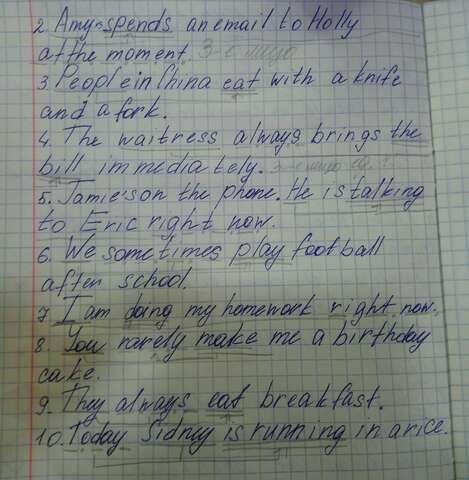 2. Amy spends an email to Holly
at the moment. 3-е лицо
3 People in China eat with a knife
and a fork.
4. The waitress always brings the
bill immediately. 3-е лицо ед.
5. Jamie's on the phone. He is talking
to Eric right now.
6. We sometimes play football
after school.
7. I am doing my homework right now.
8. You rarely make me a birthday
cake.
9. They always eat breakfast.
10. Today Sidney is running in a rice.